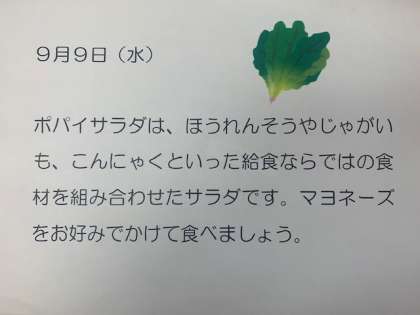 9月9日（水）
ポパイサラダは、ほうれんそうやじゃがい
も、こんにゃくといった給食ならではの食
材を組み合わせたサラダです。マヨネーズ
をお好みでかけて食べましょう。